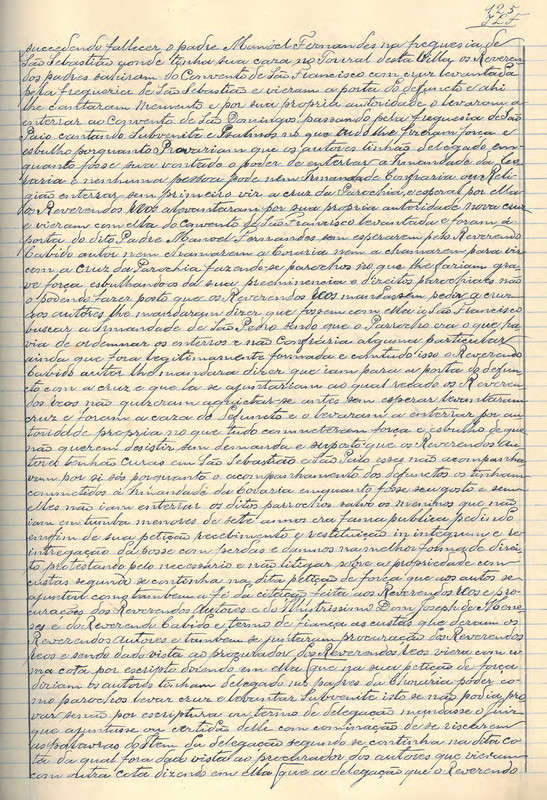 125
succedendo fallecer o padre Manoel Fernandes na freguesia de
São Sebastião aonde tinha sua caza no Toural desta Villa, os Reveren
dos padres sairam do Convento de São Francisco com cruz levantada
pela freguezia de São Sebastião e vieram a porta do defuncto e ahi
lhe cantaram Memento e por sua propria autoridade o levaram a
enterrar ao Convento de São Domingos passando pela freguesia de São
Paio cantando Subvenite e Psalmos no que tudo lhe fizeram força e
esbulho porquanto Provariam que os autores tinhão delegado em
quanto fosse sua vontade o poder de enterrar a Irmandade da Co
raria e nenhuma pessoa pode nem Irmandade Confraria ou Reli
gião enterrar sem primeiro vir a cruz da Parochia, e esperar por ella
os Reverendos Reos alevantaram por sua propria autoridade nova cruz
e vieram com ella do Convento de São Francisco levantada e foram a
porta do dito Padre Manoel Fernandes sem esperarem pelo Reverendo
Cabido autor nem chamarem a Coraria nem a chamarem para vir
com a Cruz da Parochia fazendo-se parochos no que lhe fariam gra
ve força esbulhando-os da sua preeminencia e direitos parochiaes não
o podendo fazer posto que os Reverendos Reos mandassem pedir a cruz
aos autores lhe mandaram dizer que fossem com ella a São Francisco
buscar a Irmandade de São Pedro sendo que o Parrocho era o que ha
via de ordemnar os enterros e não Confraria alguma particular
ainda que fora legitimamente formada e comtudo isso o Reverendo
Cabido autor lhe mandara dizer que iam para a porta do defun
cto com a cruz e que la se ajuntariam ao qual recado os Reveren
dos reos não quizeram aquietar-se antes sem esperar levantaram
cruz e foram a caza do defuncto e o levaram a enterrar por au
toridade propria no que tudo cometeram força e esbulho de que
não querem desistir sem demanda e supposto que os Reverendos Au
tores tenhão curas em São Sebastião e São Paio esses não acompanha
vam por si sós porquanto o acompanhamento dos defunctos os tinham
commetidos á Irmandade da Coraria emquanto fosse seu gosto e sem
elles não iam enterrar os ditos parrochos salvo os meninos que não
iam em tumba menores de sete annos era fama publica pedindo
emfim de sua petição recebimento e restituição in integrum e re
integração da posse com perdas e damnos na melhor forma de direi
to protestando pelo necessario e não litigar sobre a propriedade com
custas segundo se continha na dita petição de força que aos autos se
ajuntou como tambem a fé da citação feita aos Reverendos Reos e pro
curações dos Reverendos Autores e do Illustrissimo Dom Joseph de Mene
zes e do Reverendo Cabido e termo de fiança as custas que deram os
Reverendos Autores e tambem se juntaram procuração dos Reverendos
reos e sendo dado vista ao procurador dos Reverendos Reos viera com u
ma cota por escripto dizendo em ella que na sua petição de força
diziam os autores tinham delegado nos padres da Coraria poder co
mo parochos levar cruz e levantar Subvenite isto se não podia pro
var senão por escriptura ou termo de delegação mandasse o juiz
que ajuntasse ou certidão delle com cominação de se riscarem
as palavras do Item da delegação segundo se continha na dita co
ta da qual fora dado vista ao procurador dos autores que vieram
com outra cota dizendo em ella que a delegação que o Reverendo